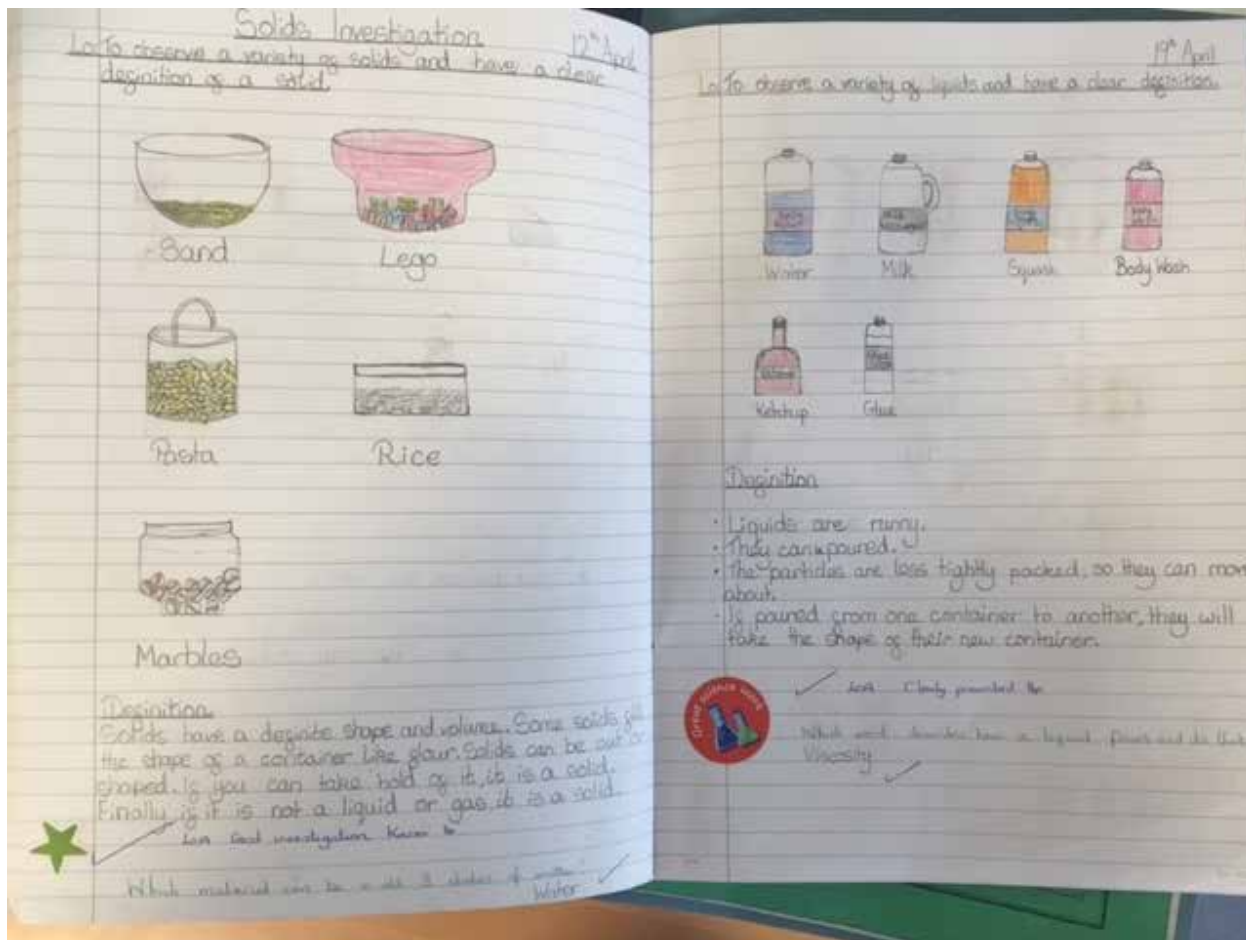 Solids Investigation
12th April
Lo To observe a variety of solids and have a clear
definition of a solid
Sand
Lego
Pasta
Rice
Marbles
Definition
Solids have a definite shape and volume. Some solids
the shape of a container like flour. Solids can be cut or
shaped. If you can take hold of it, it is a solid.
Finally if it is not a liquid or gas, it is a solid.
LOA Good investigation
Which material can be all 3 states of matter?
Water
19th April
Lo To observe a variety of liquids and have a clear definition.
Water
Milk
Squash
Body Wash
Ketchup
Glue
Definition
• Liquids are runny.
• They can be poured.
• The particles are less tightly packed, so they can move
about.
• If poured from one container to another, they will
take the shape of their new container.
Great science work
LOA Clearly presented
Which word describes how a liquid
Viscosity